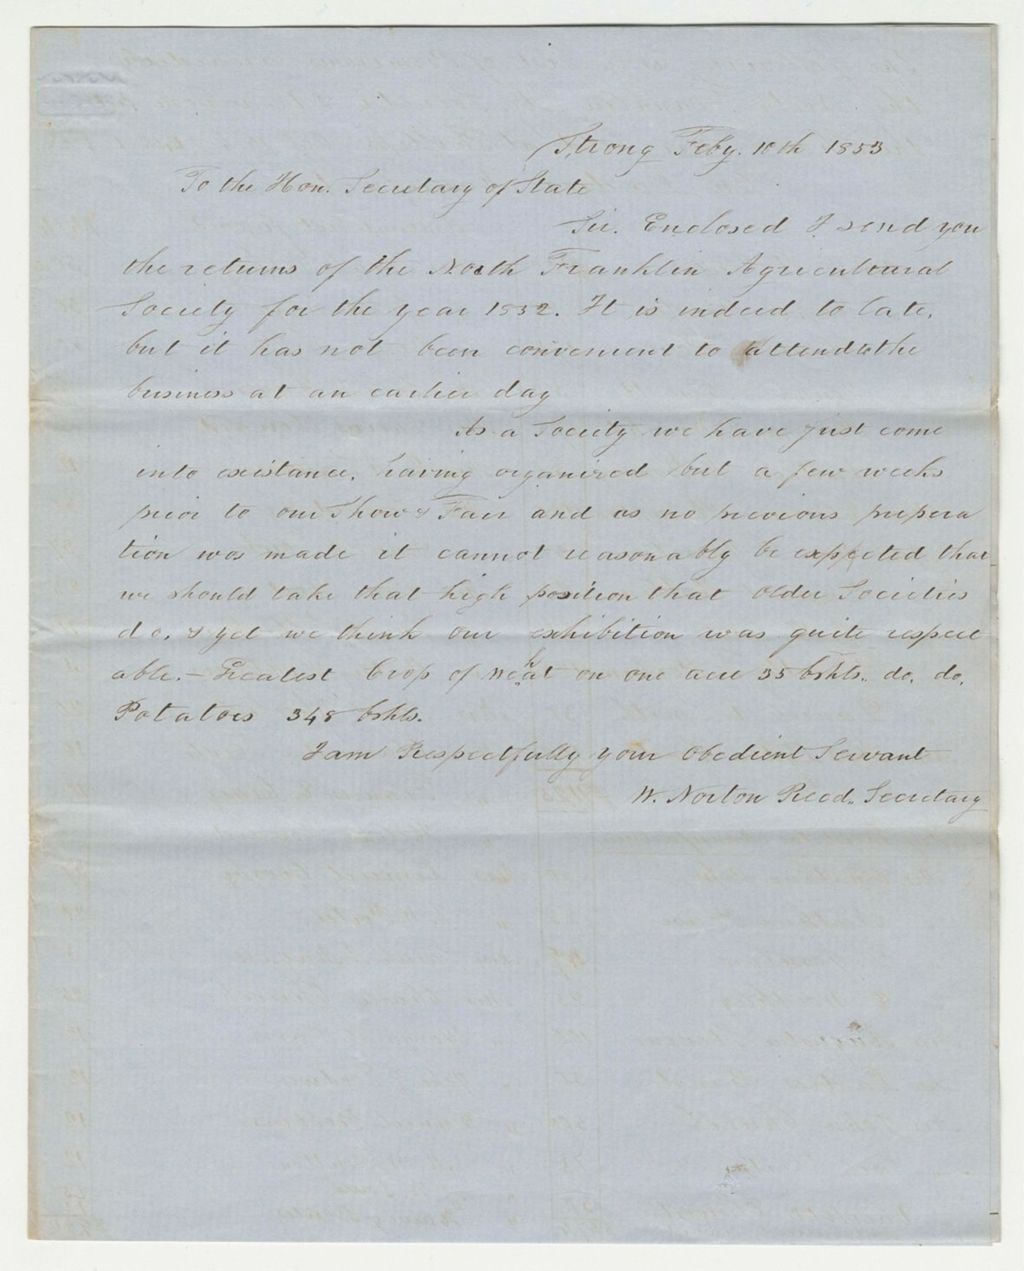 Strong Feby. 10th 1853
To the Hon. Secretary of State
Sir. Enclosed I send you
the returns of the North Franklin Agricultural
Society for the year 1852. It is indeed to late,
but it has not been convenient to attend to the
business at an earlier day
As a Society we have just come
into existance, having organized but a few weeks
prior to our Show & Fair and as no previous prepera
tion was made it cannot reasonably be expected that
we should take that high position that older Societies
do, & yet we think our exhibition was quite respect
able. – Greatest Crop of wheat on one acre 35 bshls. do, do,
Potatoes 348 bshls.
I am Respectfully your Obedient Servant
W. Norton Reed. Secretary